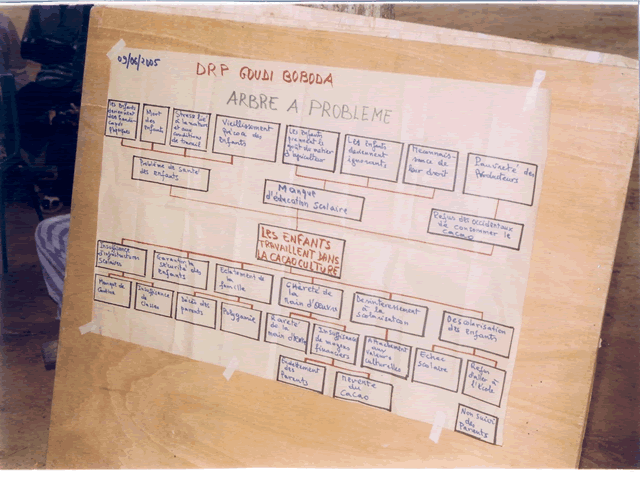 09/06/2005
DRP GOUDI BOBODA
ARBRE A PROBLEME
Les Enfants
deviennent
des handi-
capés
physiques
Mort
des
Enfants
Stress lié
à la nature
et aux
conditions
de travail
Vieillissement
précoce des
Enfants
Les Enfants
prennent le
goût du métier
d'agriculteur
Les Enfants
deviennent
ignorants
Meconnais-
sance de
leur droit
Pauvreté des
Producteurs
Problème de santé
des enfants
Manque
d'éducation scolaire
Refus des occidentaux
de consommer le
cacao
LES ENFANTS
TRAVAILLENT DANS
LA CACAOCULTURE
Insuffisance
d'infrastructures
scolaires
Garantir la
sécurité des
Enfants
Eclatement de
la famille
Cherété de
la main d'oeuvre
Desinteressement
à la
scolarisation
Descolarisation
des Enfants
Manque de
cantine
Insuffisance
de
classes
Décès des
parents
Polygamie
Rareté
de la
main d'œuvre
Insuffisance
de moyens
financiers
Attachement
aux
valeurs
culturelles
Echec
scolaire
Refus
d'aller à
l'école
Endettement
des
Parents
Revente
du
Cacao
Non suivi
des
Parents